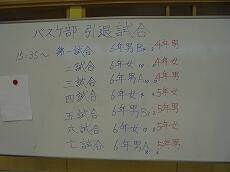 バスケ部 引退試合
15:35〜 第一試合 6年男B vs 4年男
二試合 6年女 vs 4年女
三試合 6年男A vs 4年男
四試合 6年女 vs 5年女
五試合 6年男B vs 5年男
六試合 6年女 vs 5年女
七試合 6年男A vs 5年男